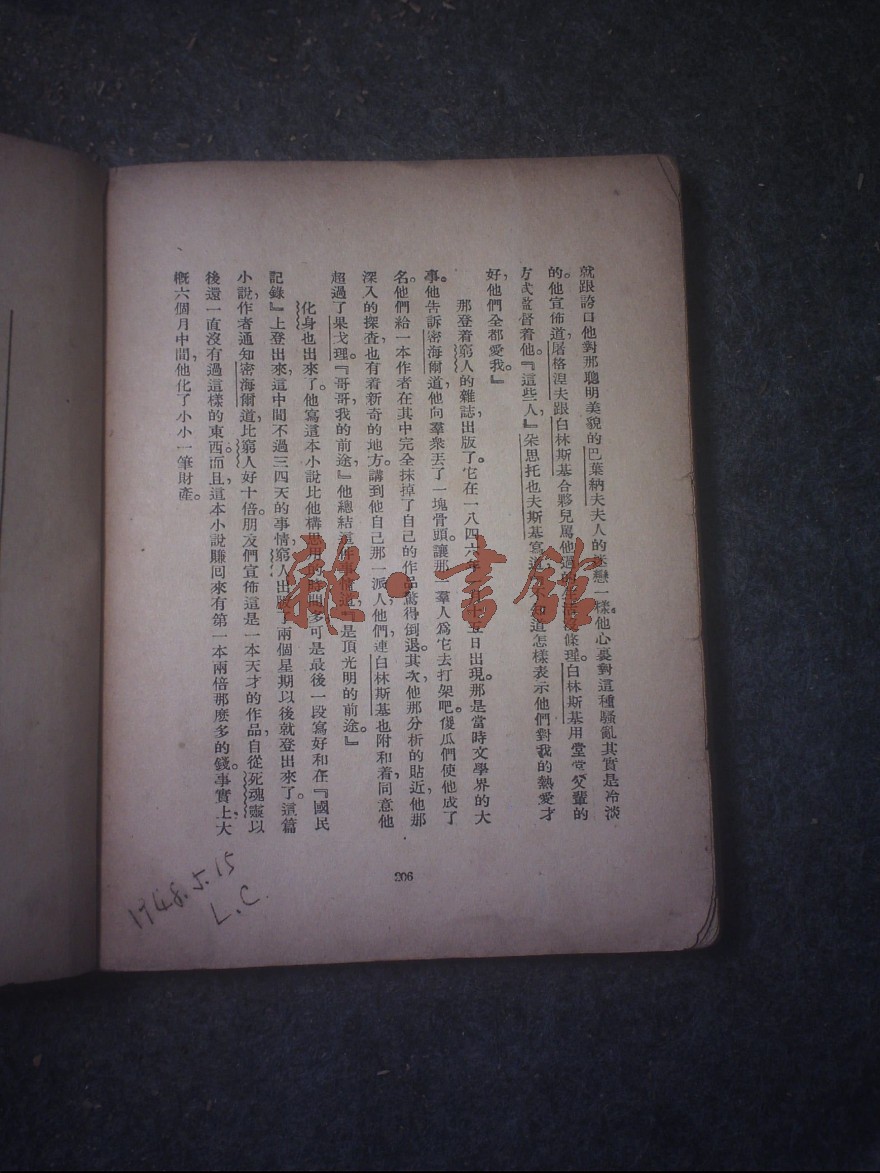 就跟誇口他對那聰明美貌的巴葉納夫夫人的迷戀一樣。他心裏對這種騷亂其實是冷淡
的。他宣佈道，屠格涅夫跟白林斯基合夥兒罵他過的生活沒條理。白林斯基用堂堂父輩的
方式監督着他。『這些人，』朵思托也夫斯基寫道，不知道怎樣表示他們對我的熱愛才
好，他們全都愛我。』
那登着窮人的雜誌出版了。它在一八四六年十五日出現。那是當時文學界的大
事。他告訴密海爾道，他向羣衆丟了一塊骨頭。讓那一羣人爲它去打架吧。傻瓜們使他成了
名。他們給一本作者在其中完全抹掉了自己的作品驚得倒退。其次，他那分析的貼近，他那
深入的探查，也有着新奇的地方。講到他自己那一派人，他們連白林斯基也附和着，同意他
超過了果戈理。『哥哥，我的前途，』他總結這件事情道，『是頂光明的前途。』
化身也出來了。他寫這本小說比他構思用的時間多，可是最後一段寫好和在『國民
記錄』上登出來，這中間不過三四天的事情，窮人出版了兩個星期以後就登出來了。這篇
小說，作者通知密海爾道，比窮人好十倍。朋友們宣佈這是一本天才的作品，自從死魂靈以
後還一直沒有過這樣的東西。而且，這本小說賺回來有第一本兩倍那麽多的錢。事實上，大
概六個月中間，他化了小小一筆財產。
206
1948.5.15
L.C.
雜·書館